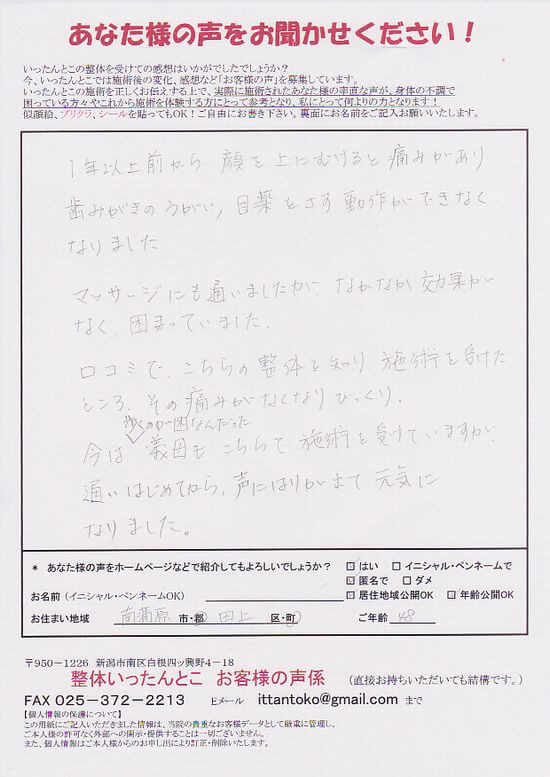 あなた様の声をお聞かせください！
いったんとこの整体を受けての感想はいかがでしたでしょうか？
今、いったんとこでは施術後の変化、感想など「お客様の声」を募集しています。
いったんとこの施術を正しくお伝えする上で、実際に施術されたあなた様の率直な声が、身体の不調で
困っている方々やこれから施術を体験する方にとって参考となり、私にとって何よりの力となります！
似顔絵、プリクラ、シールを貼ってもOK！ご自由にお書き下さい。裏面にお名前をご記入お願いいたします。
1年以上前から 顔を上にむけると痛みがあり
歯みがきのうがい, 目薬をさす動作ができなく
なりました
マッサージにも通いましたが、なかなか効果が
なく、困まっていました。
口コミで、こちらの整体を知り、施術を受けた
ところ、その痛みがなくなり びっくり。
歩くのが困なんだった
今は 義母も こちらで 施術を受けていますが、
通いはじめてから、声にはりが出て 元気に
なりました。
* あなた様の声をホームページなどで紹介してもよろしいでしょうか？ ☑はい □イニシャル・ペンネームで
☑匿名で □ダメ
お名前(イニシャル・ペンネームOK) ☑居住地域公開OK ☑年齢公開OK
お住まい地域 南蒲原 市・郡 田上 区・町 ご年齢 48
〒950-1226 新潟市南区白根四ッ興野4-18
整体いったんとこ お客様の声係 （直接お持ちいただいても結構です。）
FAX 025-372-2213 Eメール ittantoko@gmail.com まで
【個人情報の保護について】
この用紙にご記入いただきました情報は、当院の貴重なお客様データとして厳重に管理し、
ご本人様の許可なく外部への開示・提供することは一切ございません。
また、個人情報はご本人様からのお申し出により訂正・削除いたします。